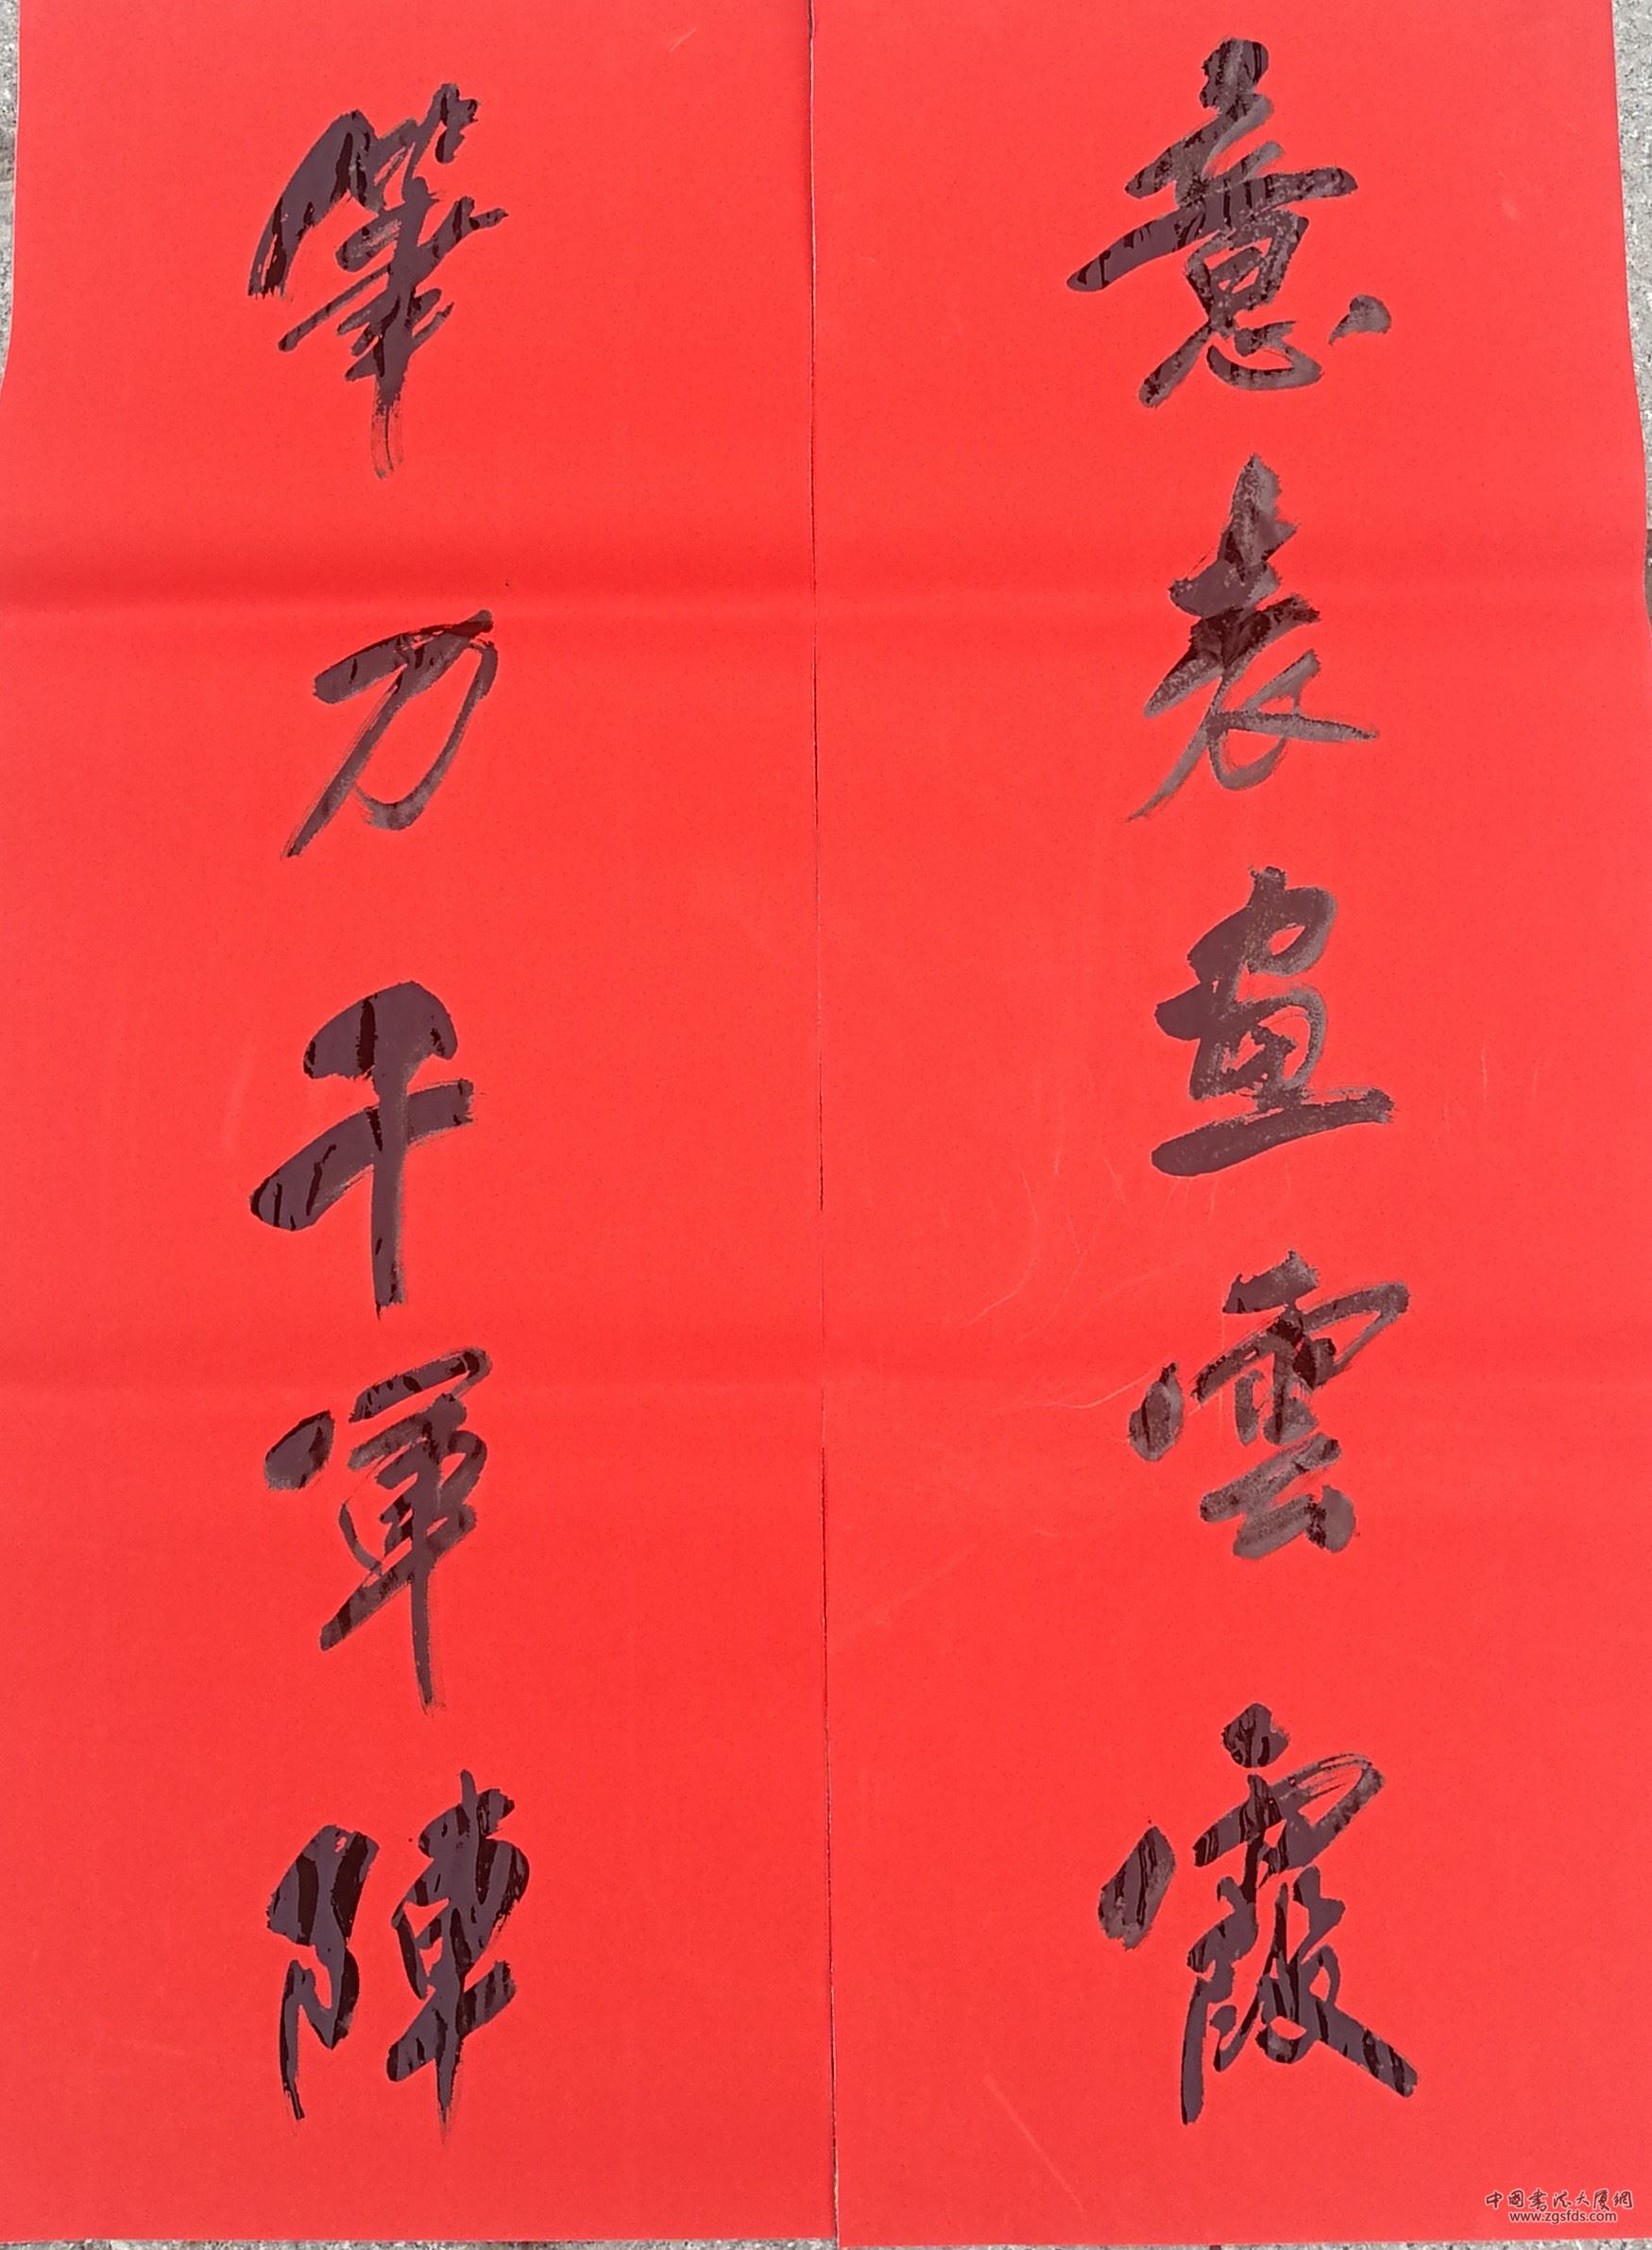 意表畫雲霞
筆力千軍陣
中国书法大厦网
www.zgsfds.com